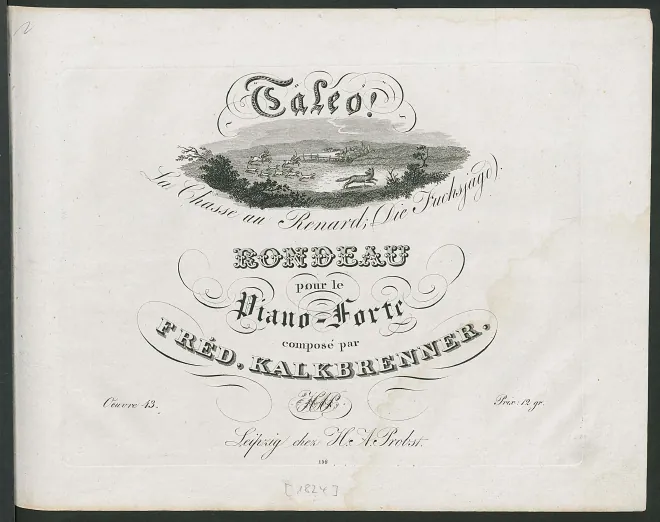 Taleo!
La Chasse au Renard; (Die Fuchsjagd).
RONDEAU
pour le
Piano-Forte
composé par
FRÉD. KALKBRENNER.
Oeuvre 43.
HAP.
Prix: 12 gr.
Leipzig chez H. A. Probst.
[1824]